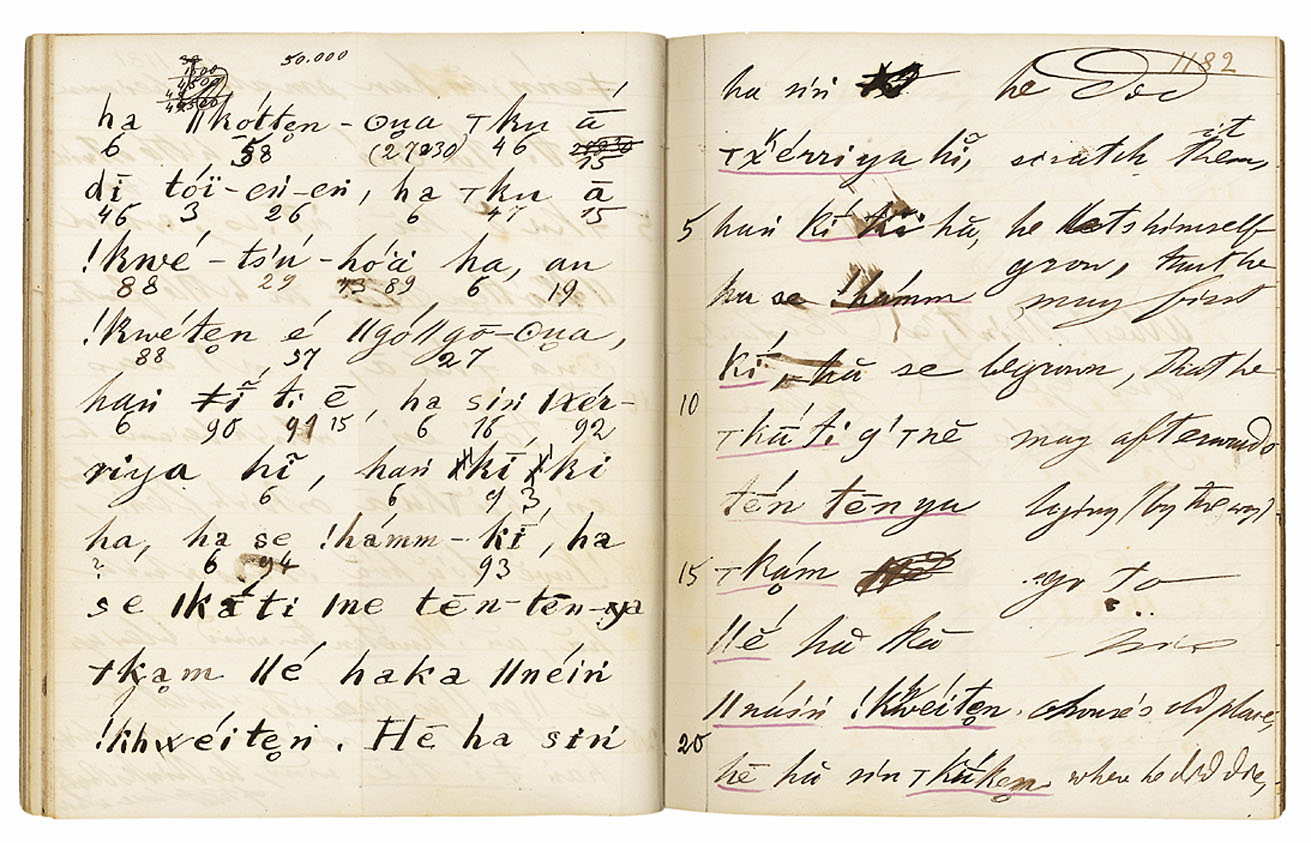 50.000
ha ǁkóttẹn-ʘụa ⊤ku ā́
6 58 (27 + 30) 46 15
dī tóï-eṅ-eṅ, ha ⊤ku ā
46 3 26 6 47 15
!kwé-tsń-hóä ha, au
88 29 89 6 19
!kwétẹn é ǁgóǁgō-ʘụa,
88 57 27
haṅ ti ē, ha siṅ ǀxér-
6 90 91 15 6 16 92
riya hĩ, haṅ kí ki
6 6 9 3
ha, ha se !hámm-kí, ha
? 6 94 93
se ǀkáti ǀne tēn-tēn-ya
⊤kạm ǁé haka ǁnéiṅ
!khwéitẹn. Hē ha siṅ
1182
ha siṅ he did
⊤x́érriya hĩ, scratch them, it
5 haṅ kí hă, he lets himself
grow, that he
ha se !hámm may first
kí hă se be grown, that he
10
⊤kāti g'⊤nĕ may afterwards
tḗn tēnya lying (by the way)
15 ⊤kạm go to
ǁé hă kă his
ǁnáiṅ !kweítẹn. house's old place,
20
hē hă siṅ ⊤kúkẹn where he did die,